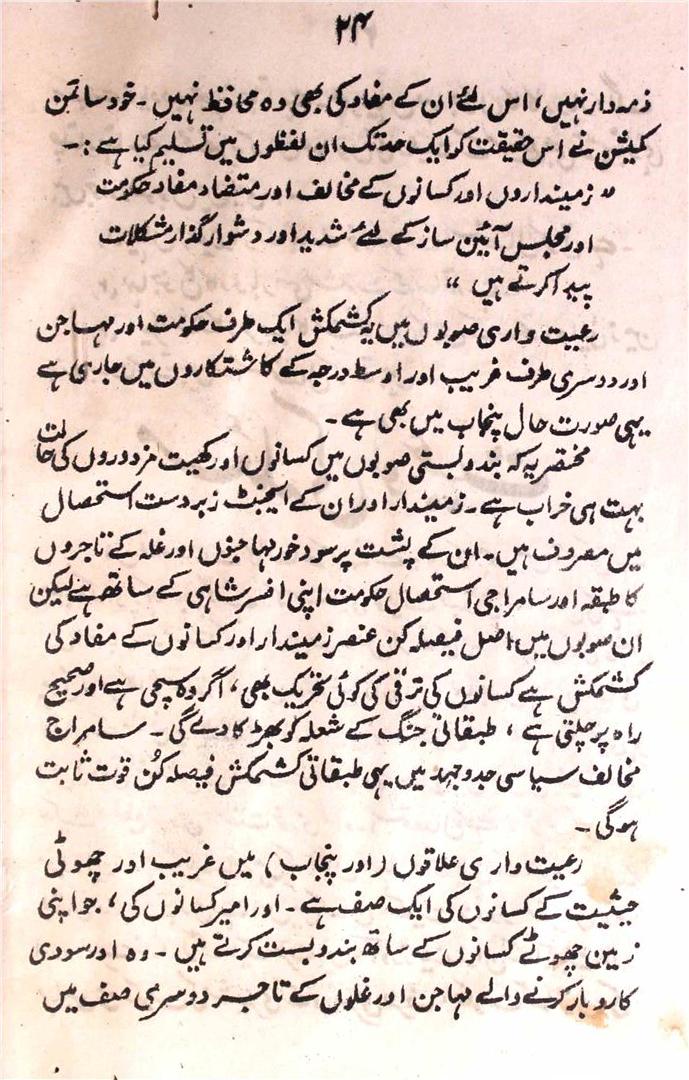 ۲۴
ذمہ دار نہیں، اس لئے ان کے مفاد کی بھی وہ محافظ نہیں۔ خود سائمن
کمیشن نے اس حقیقت کو ایک حد تک ان لفظوں میں تسلیم کیا ہے :۔
" زمینداروں اور کسانوں کے مخالف اور متضاد مفاد حکومت
اور مجلس آئین ساز کے لئے شدید اور دشوار گذار مشکلات
پیدا کرتے ہیں "
رعیت واری صوبوں میں یہ کشمکش ایک طرف حکومت اور مہاجن
اور دوسری طرف غریب اور اوسط درجہ کے کاشتکاروں میں جاری ہے
یہی صورت حال پنجاب میں بھی ہے۔
مختصر یہ کہ بندوبستی صوبوں میں کسانوں اور کھیت مزدوروں کی حالت
بہت ہی خراب ہے۔ زمیندار اور ان کے ایجنٹ زبردست استحصال
میں مصروف ہیں۔ ان کے پشت پر سود خور مہاجنوں اور غلہ کے تاجروں
کا طبقہ اور سامراجی استحصال حکومت اپنی افسر شاہی کے ساتھ ہے لیکن
ان صوبوں میں اصل فیصلہ کن عنصر زمیندار اور کسانوں کے مفاد کی
کشمکش ہے کسانوں کی ترقی کی کوئی تحریک بھی، اگر وہ سچی ہے اور صحیح
راہ پر چلتی ہے، طبقاتی جنگ کے شعلہ کو بھڑکا دے گی۔ سامراج
مخالف سیاسی جدوجہد میں یہی طبقاتی کشمکش فیصلہ کُن قوت ثابت
ہوگی۔
رعیت واری علاقوں (اور پنجاب) میں غریب اور چھوٹی
حیثیت کے کسانوں کی ایک صف ہے۔ اور امیر کسانوں کی، جو اپنی
زمین چھوٹے کسانوں کے ساتھ بندوبست کرتے ہیں۔ وہ اور سودی
کاروبار کرنے والے مہاجن اور غلوں کے تاجر دوسری صف میں